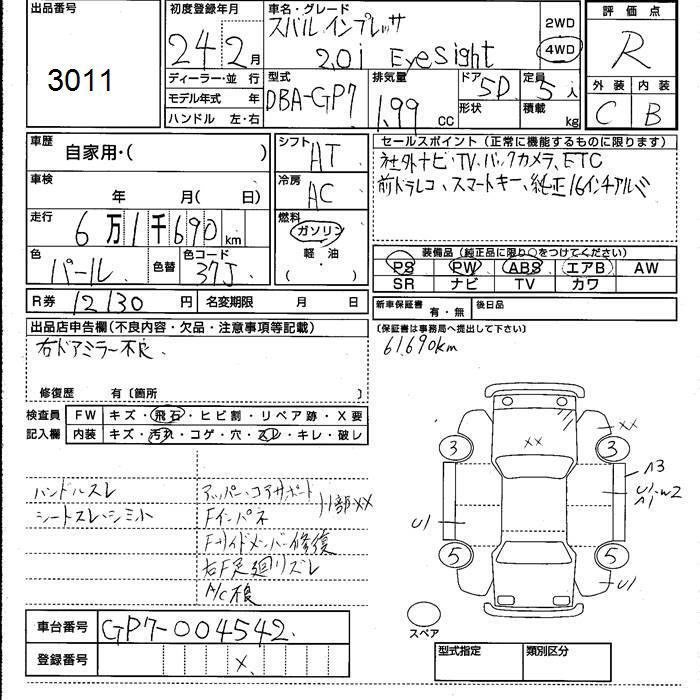 出品番号
3011
初度登録年月
24 2月
車名・グレード
スバル インプレッサ
2.0i EyeSight
2WD
4WD
評価点
R
外装 内装
C B
ディーラー・並行
モデル年式 年
ハンドル 左・右
型式
DBA-GP7
排気量
1.99 cc
ドア 5D
形状
定員 5
積載 kg
車歴
自家用・( )
シフト AT
車検
年 月( 日)
冷房 AC
走行
6万1千690km
燃料
ガソリン
軽油
( )
色
パール
色替
色コード
37J
R券 12130円
名変期限 月 日
セールスポイント(正常に機能するものに限ります)
社外ナビ・TV、バックカメラ、ETC
前ドラレコ、スマートキー、純正16インチアルミ
装備品(純正品に限り○をつけてください)
PS PW ABS エアB AW
SR ナビ TV カワ
新車保証書 有・無
後日品
(保証書は事務局へ提出して下さい)
61,690km
出品店申告欄(不良内容・欠品・注意事項等記載)
右ドアミラー不良
修復歴 有〔箇所 〕
検査員 FW キズ・飛石・ヒビ割・リペア跡・X要
記入欄 内装 キズ・汚れ・コゲ・穴・スレ・キレ・破レ
ハンドルスレ
シートスレ・シミ小
アッパー・コアサポート
Fインパネ
F部XX
Fサイドメンバー修復
右F足廻リズレ
A/C不良
XX
XX
3
3
A3
U1・W2
A1
U1
5
5
U1
スペア
車台番号 GP7-004542
登録番号 X
型式指定 類別区分